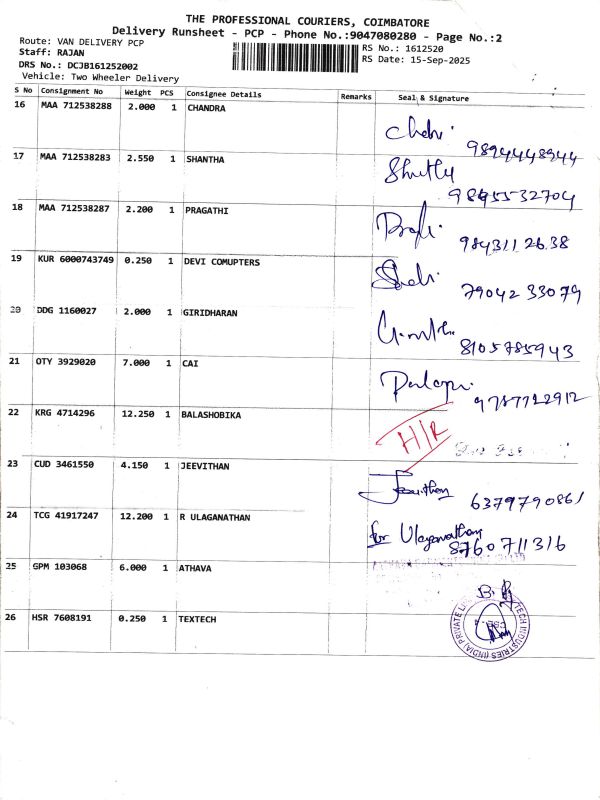 THE PROFESSIONAL COURIERS, COIMBATORE
Delivery Runsheet - PCP - Phone No.:9047080280 - Page No.:2
Route: VAN DELIVERY PCP
RS No.: 1612520
Staff: RAJAN
RS Date: 15-Sep-2025
DRS No.: DCJB161252002
Vehicle: Two Wheeler Delivery
S No Consignment No Weight PCS Consignee Details Remarks Seal & Signature
16 MAA 712538288 2.000 1 CHANDRA
9894448944
17 MAA 712538283 2.550 1 SHANTHA
18 MAA 712538287 2.200 1 PRAGATHI
9843112638
19 KUR 6000743749 0.250 1 DEVI COMUPTERS
7904233079
20 DDG 1160027 2.000 1 GIRIDHARAN
8105785943
21 OTY 3929020 7.000 1 CAI
9787722912
22 KRG 4714296 12.250 1 BALASHOBIKA
H/R
23 CUD 3461550 4.150 1 JEEVITHAN
Jeevithan
6379790861
24 TCG 41917247 12.200 1 R ULAGANATHAN
for Ulaganathan
8760711316
25 GPM 103068 6.000 1 ATHAVA
26 HSR 7608191 0.250 1 TEXTECH
TECH INDUSTRIES (INDIA) PRIVATE